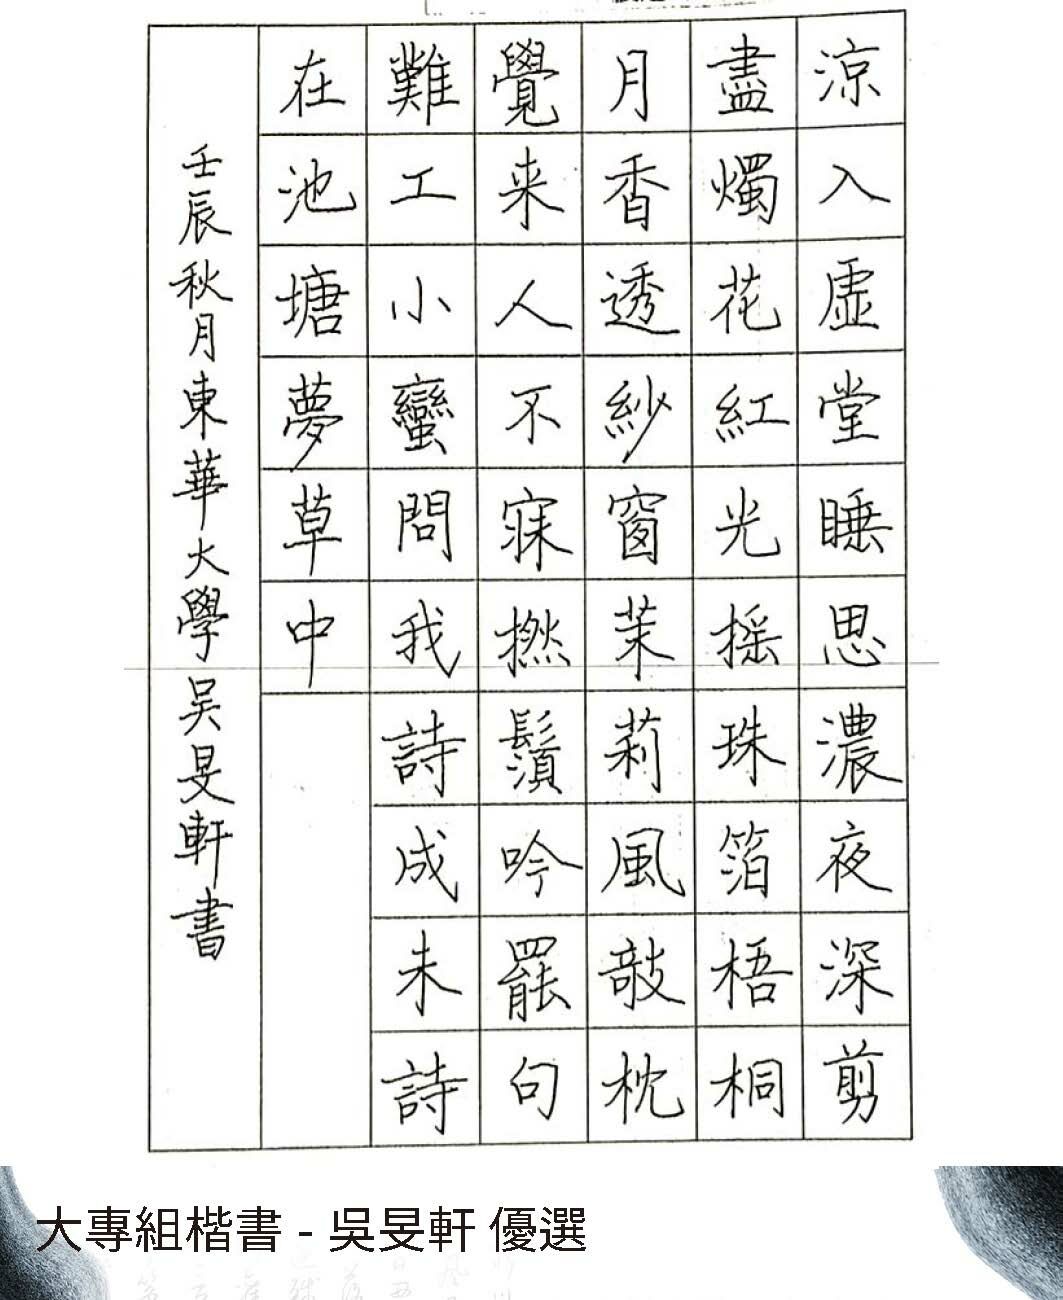 涼入虛堂睡思濃夜深剪
盡燭花紅光搖珠箔梧桐
月香透紗窗茉莉風敲枕
覺来人不寐撚鬚吟罷句
難工小蠻問我詩成未詩
在池塘夢草中
壬辰秋月東華大學吳旻軒書
大專組楷書 - 吳旻軒 優選